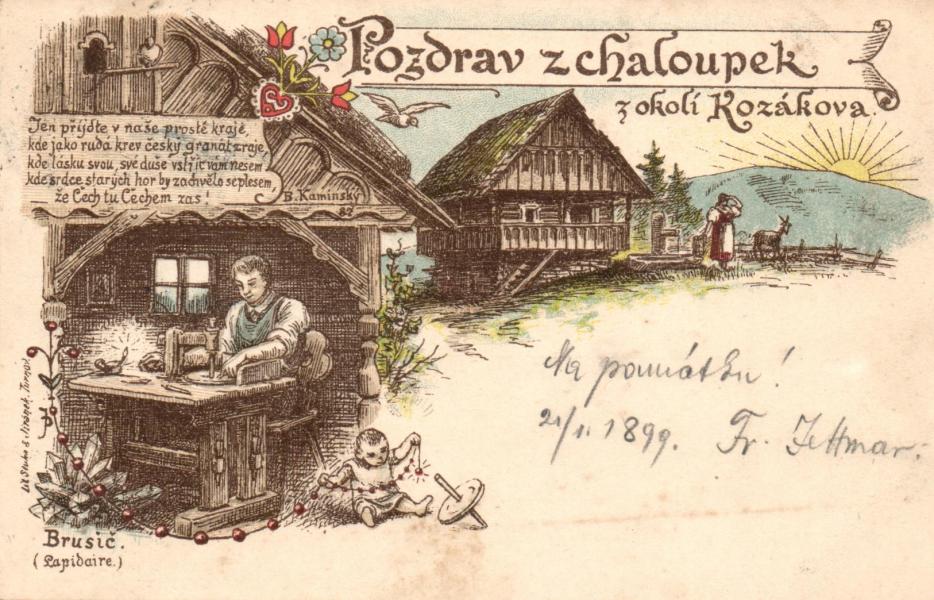 Pozdrav z chaloupek
z okolí Kozákova.
Jen přijďte v naše prosté kraje,
kde jako ruda krev český granát zraje,
kde lásku svou, své duše vstříc vám nesem,
kde srdce starých hor by zachvělo se plesem,
že Čech tu Čechem zas!
B. Kaminský
Na památku!
21/1. 1899. Fr. Jettmar.
Brusič.
(Lapidaire.)